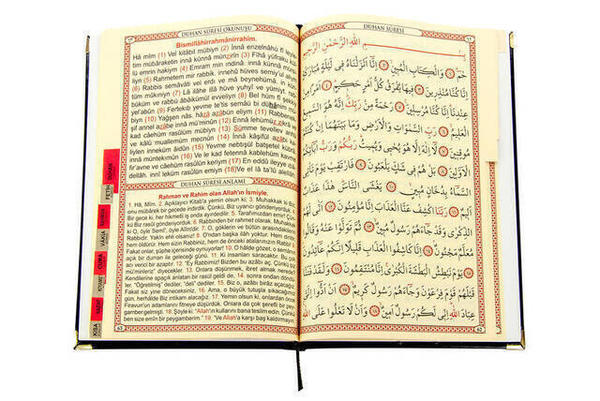 DUHAN SÛRESİ OKUNUŞU
Bismillâhirrahmânirrahîm.
Hâ mîm (1) Vel kitâbil mübîn (2) İnnâ enzelnâhü fî leyle-
tim mübâraketin innâ künnâ münzirîn (3) Fîhâ yüfraku kül-
lü emrin hakîm (4) Emram min ındinâ innâ künnâ mürsi-
liyn (5) Rahmetem mir rabbik innehû hüves semîy'ul aliym
(6) Rabbis semâvâti vel erdı ve mâ beynehümâ in
tüm mûkıniyn (7) Lâ ilâhe illâ hüve yuhyî ve yümiyt
büküm ve rabbü âbâikümül evveliyn (8) Bel hüm fî şekkiy
(9) Fertekıb yevme te'tis semâü bi duhânim
biyn (10) Yağşen nâs hâzâ azâbün eliym (11) Rabbenek-
şif annel azâbe innâ mü'minûn (12) Ennâ lehümüz
ve kad câehüm rasûlüm mübiyn (13) Sümme tevellev anhü
ve kâlû muallemüm mecnûn (14) İnnâ kâşifül azâbi
(15) Yevme nebtışül batşetel kübrâ
innâ müntekımûn (16) Ve le kad fetennâ kablehüm kavme
fir'avne ve câehüm rasûlün keriym (17) En eddû ileyye
dallâh innî leküm rasûlün emiyn (18) Ve el lâ ta'lû alellâh
DUHAN SÛRESİ ANLAMI
Rahman ve Rahim olan Allah'ın İsmiyle.
1. Hâ, Mîm. 2. Açıklayıcı Kitab'a yemin olsun ki; 3. Muhakkak biz
onu mübârek bir gecede indirdik. Çünkü, Biz uyarıcı gönderiyorduk. 4.
Bir gece ki, her hikmetli iş onda ayırdedilir. 5. Tarafımızdan emir! Çün-
kü Biz rasûl gönderiyorduk. 6. Rabbinden bir rahmet olarak. Muhak-
kak ki O, öyle Semî', öyle Alîm'dir. 7. O, göklerin ve bütün arasındakilerin
Rabbidir. Yakîn ehli olsanız! 8. O'ndan başka ilâh yoktur. Hem diriltir,
hem öldürür. Hem sizin Rabbiniz, hem de önceki atalarınızın Rabbi! 9.
Fakat onlar, şüphe içerisinde oynuyorlar! 10. O hâlde gözet, o semânın
açık bir duman ile geleceği günü. 11. Ki insanları saracaktır. Bu pek
acı verici bir azaptır. 12. "Ey Rabbimiz! Bizden bu azâbı aç. Çünkü biz
mü'minleriz" diyecekler. 13. Onlara düşünmek, ibret almak nerede!
Kendilerine apaçık anlatan bir rasûl geldi de, 14. sonra ondan döndü-
ler. "Öğretilmiş" dediler, "deli" dediler. 15. Biz o, azâbı biraz açacağız.
Fakat siz yine döneceksiniz. 16. Ama, o büyük tutuşla sıkacağımız
gün, herhâlde Biz intikam alacağız. 17. Yemin olsun ki, onlardan önce
Firavun'un adamlarını fitneye düşürdük. Onlara da çok şerefli bir pey-
gamber gelmişti. 18. Şöyle ki: "Allah'ın kullarını bana teslim edin. Çünkü,
ben size emin bir peygamberim." 19. "Ve Allah'a karşı baş kaldırmayın.
63
FETİH
DUHAN
VÂKIA
CUMA
KISA
DUHAN SÛRESİ
بِسْمِ اللّٰهِ الرَّحْمٰنِ الرَّحِيمِ
حٰمٓ ﴿١﴾ وَالْكِتَابِ الْمُبِينِ ﴿٢﴾ اِنَّٓا اَنْزَلْنَاهُ فِي لَيْلَةٍ مُبَارَكَةٍ
اِنَّا كُنَّا مُنْذِرِينَ ﴿٣﴾ فِيهَا يُفْرَقُ كُلُّ اَمْرٍ حَكِيمٍ ﴿٤﴾ اَمْرًا مِنْ
عِنْدِنَا اِنَّا كُنَّا مُرْسِلِينَ ﴿٥﴾ رَحْمَةً مِنْ رَبِّكَ اِنَّهُ هُوَ السَّمِيعُ
الْعَلِيمُ ﴿٦﴾ رَبِّ السَّمٰوَاتِ وَالْاَرْضِ وَمَا بَيْنَهُمَا اِنْ كُنْتُمْ
مُوقِنِينَ ﴿٧﴾ لَٓا اِلٰهَ اِلَّا هُوَ يُحْيِي وَيُمِيتُ رَبُّكُمْ وَرَبُّ اٰبَٓائِكُمُ
الْاَوَّلِينَ ﴿٨﴾ بَلْ هُمْ فِي شَكٍّ يَلْعَبُونَ ﴿٩﴾ فَارْتَقِبْ يَوْمَ تَأْتِي
السَّمَٓاءُ بِدُخَانٍ مُبِينٍ ﴿١٠﴾ يَغْشَى النَّاسَ هٰذَا عَذَابٌ
اَلِيمٌ ﴿١١﴾ رَبَّنَا اكْشِفْ عَنَّا الْعَذَابَ اِنَّا مُؤْمِنُونَ ﴿١٢﴾ اَنّٰى لَهُمُ
الذِّكْرٰى وَقَدْ جَٓاءَهُمْ رَسُولٌ مُبِينٌ ﴿١٣﴾ ثُمَّ تَوَلَّوْا عَنْهُ وَقَالُوا
مُعَلَّمٌ مَجْنُونٌ ﴿١٤﴾ اِنَّا كَاشِفُوا الْعَذَابِ قَلِيلًا اِنَّكُمْ عَٓائِدُونَ
﴿١٥﴾ يَوْمَ نَبْطِشُ الْبَطْشَةَ الْكُبْرٰى اِنَّا مُنْتَقِمُونَ ﴿١٦﴾ وَلَقَدْ فَتَنَّا
قَبْلَهُمْ قَوْمَ فِرْعَوْنَ وَجَٓاءَهُمْ رَسُولٌ كَرِيمٌ ﴿١٧﴾ اَنْ اَدُّٓوا اِلَيَّ
عِبَادَ اللّٰهِ اِنِّي لَكُمْ رَسُولٌ اَمِينٌ ﴿١٨﴾ وَاَنْ لَا تَعْلُوا عَلَى اللّٰهِ
62